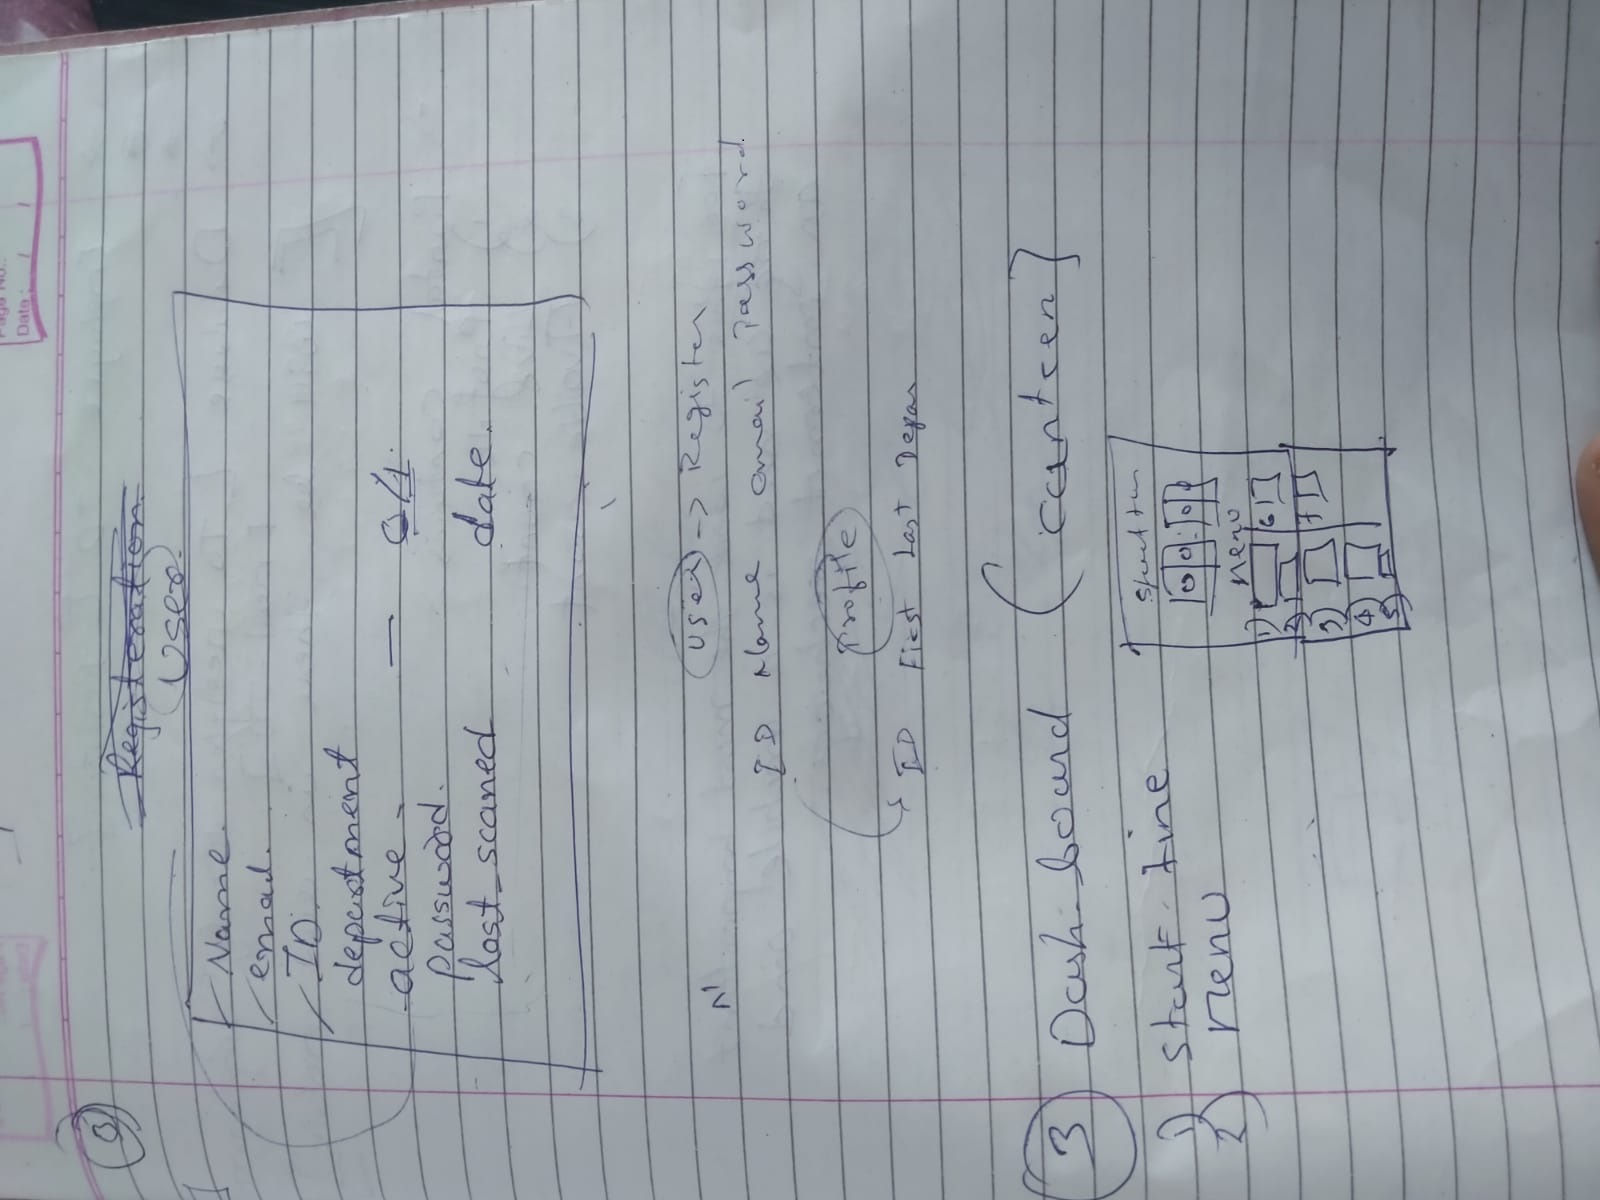 Page No.
Date: / /
Registeration
User
Name.
email.
ID.
department
active. — 0/1.
Password.
last_scaned date.
User -> Register
N
ID Name email Password.
Profile
ID First Last Depar
3 Dash-board (canteen]
1) start-time
2) menu
00:00
menu
1) 6)
2) 7)
3)
4)
5)